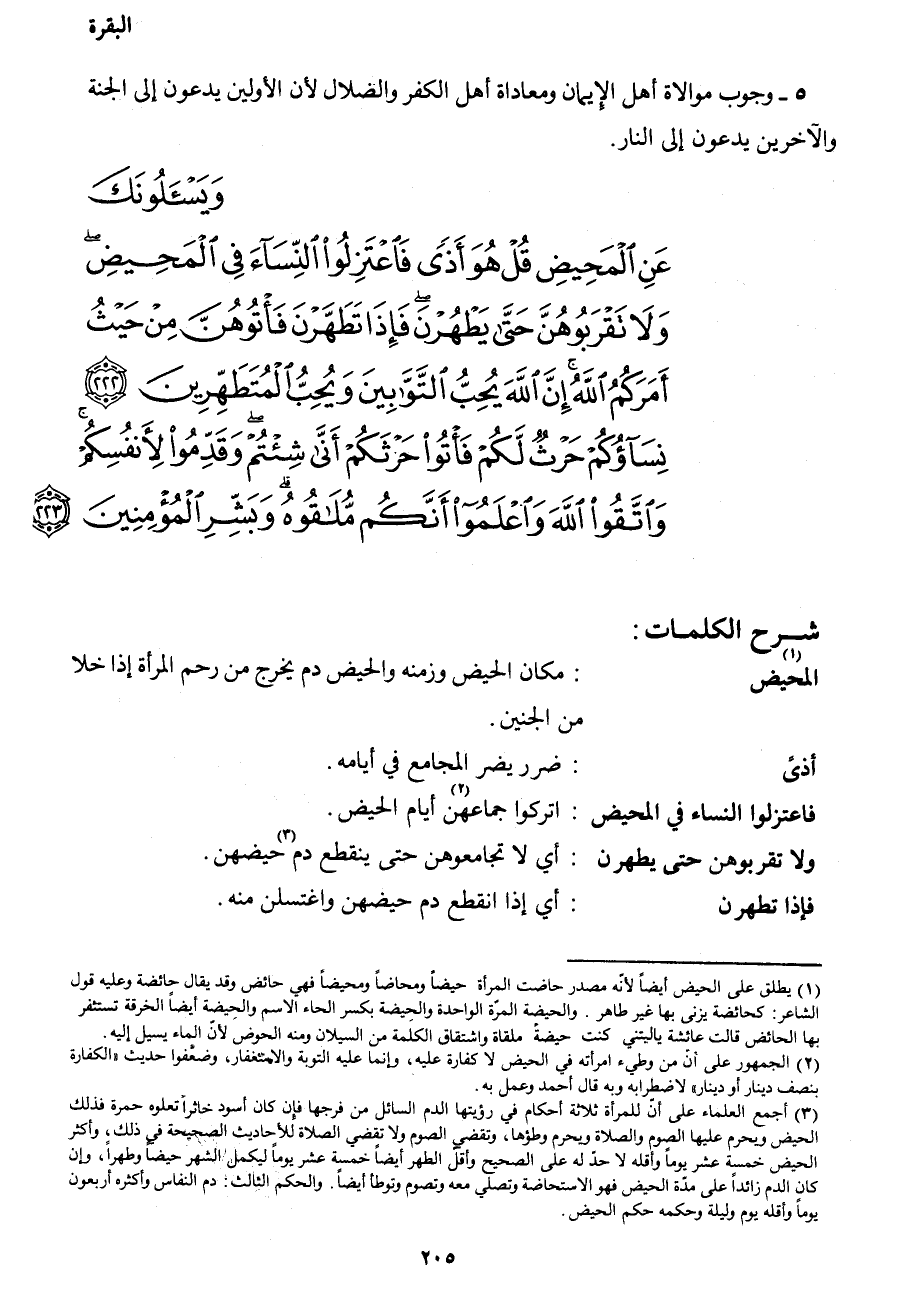 البقرة
٥ ـ وجوب موالاة أهل الإيمان ومعاداة أهل الكفر والضلال لأن الأولين يدعون إلى الجنة
والآخرين يدعون إلى النار.
وَيَسْـَٔلُونَكَ
عَنِ ٱلْمَحِيضِ قُلْ هُوَ أَذًى فَٱعْتَزِلُوا۟ ٱلنِّسَآءَ فِى ٱلْمَحِيضِ ۖ
وَلَا تَقْرَبُوهُنَّ حَتَّىٰ يَطْهُرْنَ ۖ فَإِذَا تَطَهَّرْنَ فَأْتُوهُنَّ مِنْ حَيْثُ
أَمَرَكُمُ ٱللَّهُ ۚ إِنَّ ٱللَّهَ يُحِبُّ ٱلتَّوَّٰبِينَ وَيُحِبُّ ٱلْمُتَطَهِّرِينَ ٢٢٢
نِسَآؤُكُمْ حَرْثٌ لَّكُمْ فَأْتُوا۟ حَرْثَكُمْ أَنَّىٰ شِئْتُمْ ۖ وَقَدِّمُوا۟ لِأَنفُسِكُمْ ۚ
وَٱتَّقُوا۟ ٱللَّهَ وَٱعْلَمُوٓا۟ أَنَّكُم مُّلَٰقُوهُ ۗ وَبَشِّرِ ٱلْمُؤْمِنِينَ ٢٢٣
شـرح الكلمـات :
المحيض (١) : مكان الحيض وزمنه والحيض دم يخرج من رحم المرأة إذا خلا
من الجنين .
أذىً : ضرر يضر المجامع في أيامه .
فاعتزلوا النساء في المحيض : اتركوا جماعهن (٢) أيام الحيض .
ولا تقربوهن حتى يطهرن : أي لا تجامعوهن حتى ينقطع دم (٣) حيضهن .
فإذا تطهرن : أي إذا انقطع دم حيضهن واغتسلن منه .
(١) يطلق على الحيض أيضاً لأنّه مصدر حاضت المرأة حيضاً ومحاضاً ومحيضاً فهي حائض وقد يقال حائضة وعليه قول
الشاعر: كحائضة يزنى بها غير طاهر . والحيضة المرّة الواحدة والحِيضة بكسر الحاء الاسم والحِيضة أيضاً الخرقة تستثفر
بها الحائض قالت عائشة ياليتني كنت حيضةً ملقاة واشتقاق الكلمة من السيلان ومنه الحوض لأنّ الماء يسيل إليه .
(٢) الجمهور على أنّ من وطيء امرأته في الحيض لا كفارة عليه، وإنما عليه التوبة والاستغفار، وضعّفوا حديث «الكفارة
بنصف دينار أو دينار» لاضطرابه وبه قال أحمد وعمل به .
(٣) أجمع العلماء على أنّ للمرأة ثلاثة أحكام في رؤيتها الدم السائل من فرجها فإن كان أسود خاثراً تعلوه حمرة فذلك
الحيض ويحرم عليها الصوم والصلاة ويحرم وطؤها، وتقضي الصوم ولا تقضي الصلاة للأحاديث الصحيحة في ذلك، وأكثر
الحيض خمسة عشر يوماً وأقله لا حدّ له على الصحيح وأقلّ الطهر أيضاً خمسة عشر يوماً ليكمل الشهر حيضاً وطهراً، وإن
كان الدم زائداً على مدّة الحيض فهو الاستحاضة وتصلي معه وتصوم وتوطأ أيضاً. والحكم الثالث: دم النفاس وأكثره أربعون
يوماً وأقله يوم وليلة وحكمه حكم الحيض .
٢٠٥